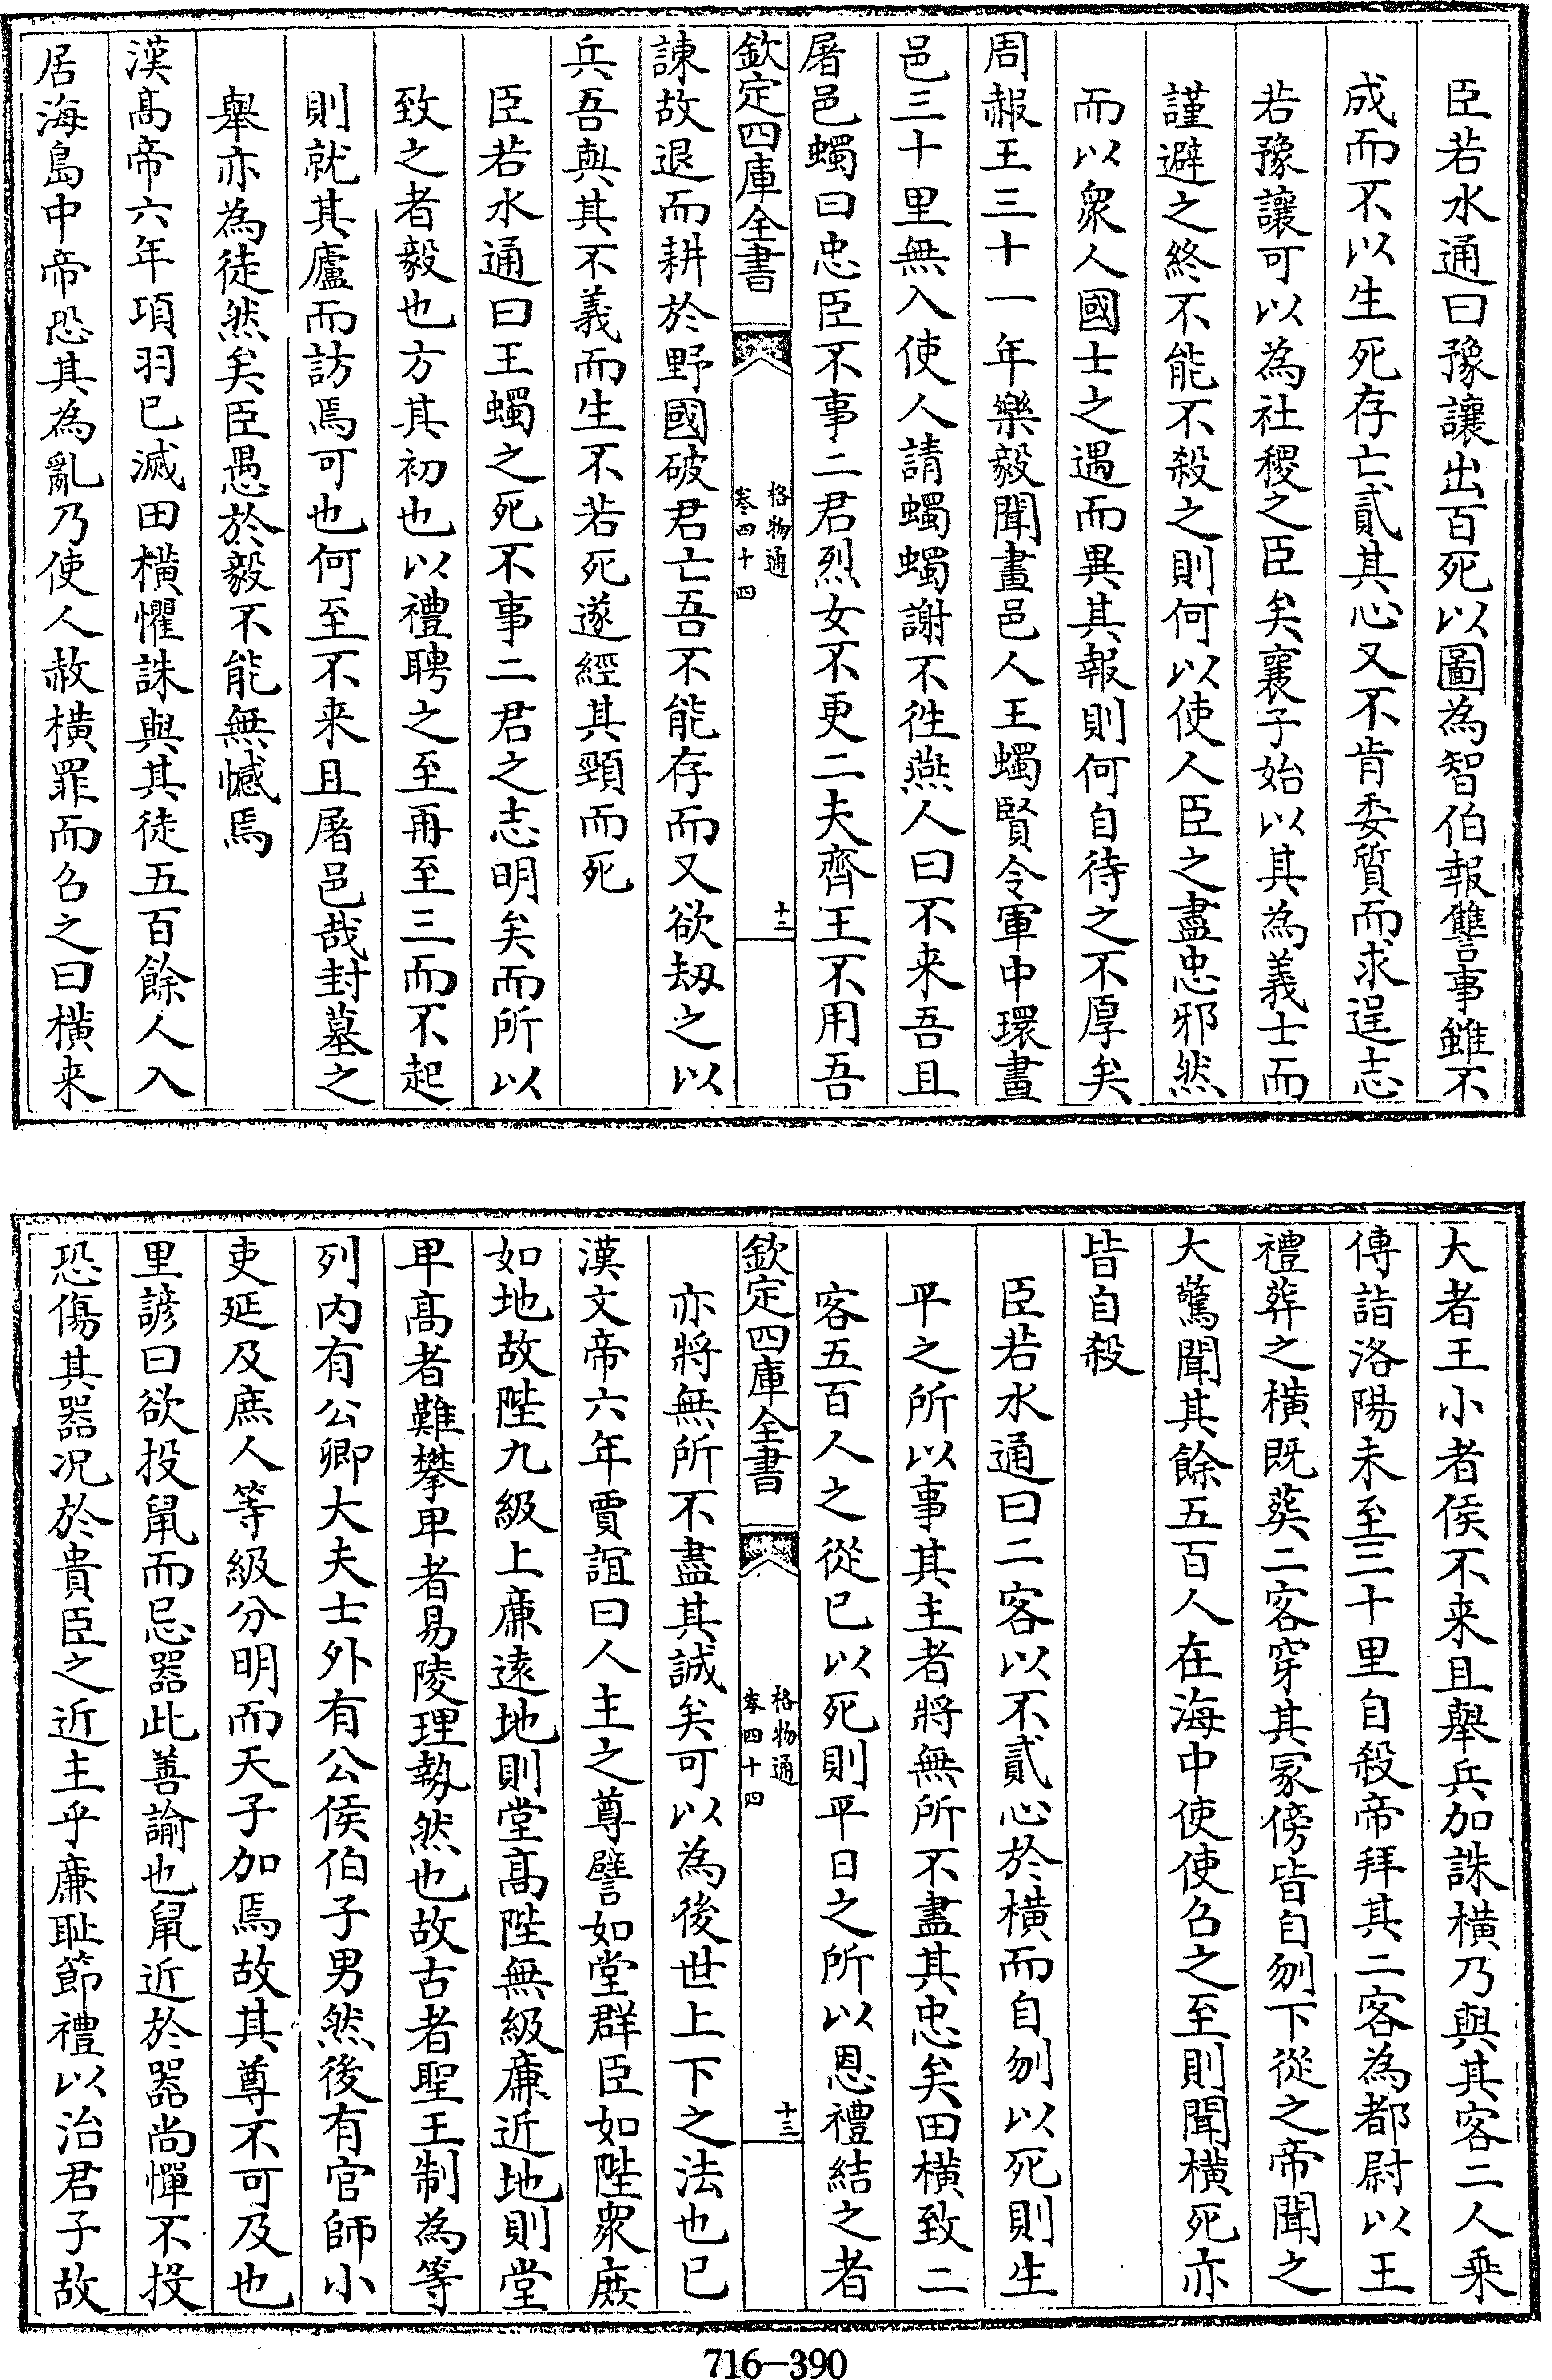 臣若水通曰豫讓出百死以圖為智伯報讐事雖不
成而不以生死存亡貳其心又不肯委質而求逞志
若豫讓可以為社稷之臣矣襄子始以其為義士而
謹避之終不能不殺之則何以使人臣之盡忠邪然
而以衆人國士之遇而異其報則何自待之不厚矣
周赧王三十一年樂毅聞畫邑人王蠋賢令軍中環畫
邑三十里無入使人請蠋蠋謝不徃燕人曰不来吾且
屠邑蠋曰忠臣不事二君烈女不更二夫齊王不用吾
欽定四庫全書
格物通
卷四十四
十二
諌故退而耕於野國破君亡吾不能存而又欲刼之以
兵吾與其不義而生不若死遂經其頸而死
臣若水通曰王蠋之死不事二君之志明矣而所以
致之者毅也方其初也以禮聘之至再至三而不起
則就其廬而訪焉可也何至不来且屠邑哉封墓之
舉亦為徒然矣臣愚於毅不能無憾焉
漢髙帝六年項羽已滅田橫懼誅與其徒五百餘人入
居海島中帝恐其為亂乃使人赦橫罪而召之曰橫来
大者王小者侯不来且舉兵加誅橫乃與其客二人乘
傳詣洛陽未至三十里自殺帝拜其二客為都尉以王
禮葬之橫既葬二客穿其冢傍皆自刎下從之帝聞之
大驚聞其餘五百人在海中使使召之至則聞橫死亦
皆自殺
臣若水通曰二客以不貳心於橫而自刎以死則生
平之所以事其主者將無所不盡其忠矣田橫致二
客五百人之從已以死則平日之所以恩禮結之者
欽定四庫全書
格物通
卷四十四
十三
亦將無所不盡其誠矣可以為後世上下之法也已
漢文帝六年賈誼曰人主之尊譬如堂群臣如陛衆庶
如地故陛九級上廉遠地則堂髙陛無級廉近地則堂
卑髙者難攀卑者易陵理勢然也故古者聖王制為等
列内有公卿大夫士外有公侯伯子男然後有官師小
吏延及庶人等級分明而天子加焉故其尊不可及也
里諺曰欲投鼠而忌器此善諭也鼠近於器尚憚不投
恐傷其器况於貴臣之近主乎廉恥節禮以治君子故
716-390